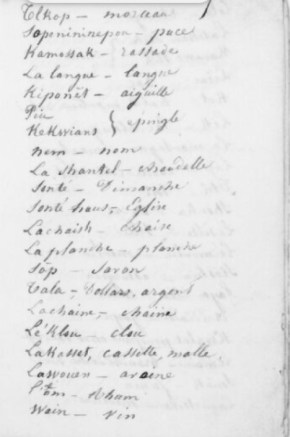 Elkop – morceau
Soponininepon – puce
Kamossak – rassade
La langue – langue
Kiponet – aiguille
Piu
Kekivians } epingle
nem – nom
La shankel – chandelle
Sonte – Dimanche
Sonte haus – Eglise
Lachaish – chaise
La planche – planche
Sop – savon
Tala – Dollars, argent
Lachaine – chaine
Le'Klou – clou
LaKasset, cassette, malle.
Lawouen – avoine
L'tom – Rhum
Wain – Vin